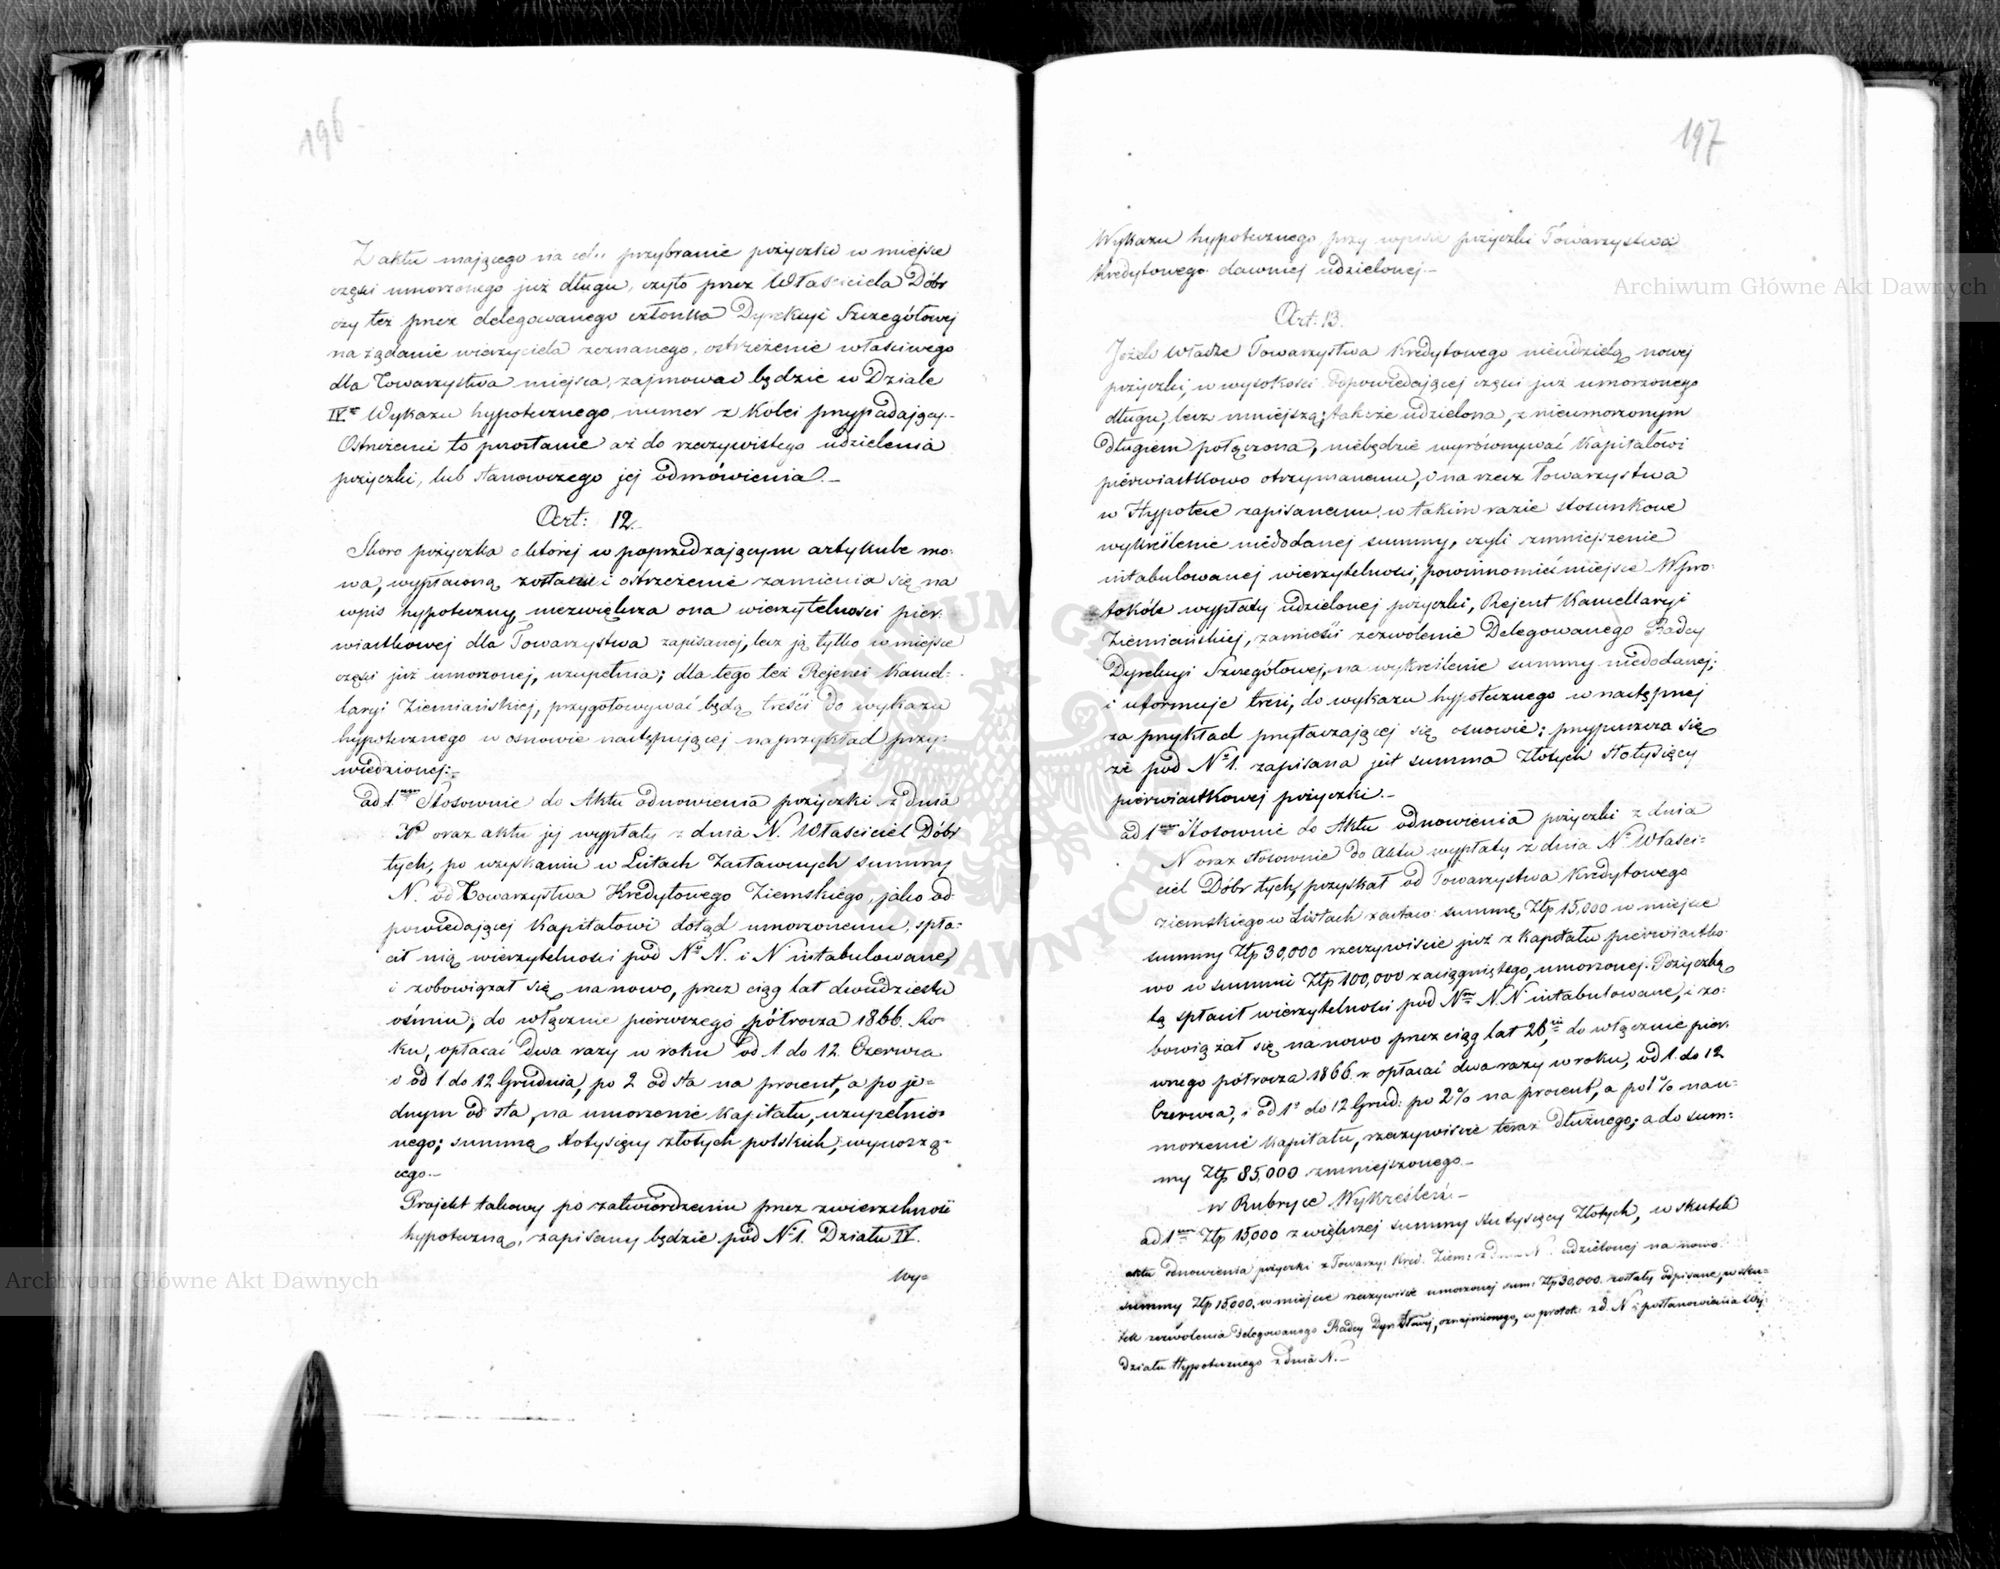 196
Z aktu mającego na celu przybranie pożyczki w miejsce
części umorzonego już długu, czyto przez Właściciela Dóbr
czy też przez delegowanego członka Dyrekcyi Szczegółowej
na żądanie wierzyciela zeznanego, ostrzeżenie właściwego
dla Towarzystwa miejsca, zajmować będzie w Dziale
IVm Wykazu hypotecznego, numer z kolei przypadający.-
Ostrzeżenie to pozostanie aż do rzeczywistego udzielenia
pożyczki, lub stanowczego jej odmówienia.-
Art: 12.
Skoro pożyczka o której w poprzedzającym artykule mo-
wa, wypłaconą zostanie i ostrzeżenie zamienia się na
wpis hypoteczny, niezwiększa ona wierzytelności pier-
wiastkowej dla Towarzystwa zapisanej, lecz ją tylko w miejsce
części już umorzonej, uzupełnia; dla tego też Rejenci Kancel-
laryi Ziemiańskiej, przygotowywać będą treści do wykazu
hypotecznego w osnowie następującej naprzykład przy-
wiedzionej:-
ad 1. Stosownie do Aktu odnowienia pożyczki z dnia
N oraz aktu jej wypłaty z dnia N. Właściciel Dóbr
tych, po uzyskaniu w Listach Zastawnych summy
N. od Towarzystwa Kredytowego Ziemskiego, jako od-
powiedającej Kapitałowi dotąd umorzonemu, spła-
cił nią wierzytelności pod No N. i N intabulowane,
i zobowiązał się nanowo, przez ciąg lat dwudziestu
ośmiu; do włącznie pierwszego półrocza 1866. Ro-
ku, opłacać dwa razy w roku od 1 do 12 Czerwca
i od 1 do 12 Grudnia, po 2 od sta na procent, a po je-
dnym od sta, na umorzenie kapitału, uzupełnio-
nego; summę stotysięcy złotych polskich, wynoszą-
cego.-
Projekt takowy po zatwierdzeniu przez zwierzchność
hypoteczną, zapisany będzie pod No 1. Działu IV.
Wy-
197
Wykazu hypotecznego przy wpisie pożyczki Towarzystwa
Kredytowego dawniej udzielonej.-
Art: 13.
Jeżeli Władze Towarzystwa Kredytowego nieudzielą nowej
pożyczki, w wysokości odpowiedającej części już umorzonego
długu, lecz mniejszą; tak że udzielona, z nieumorzonym
długiem połączona, niebędzie wyrównywać Kapitałowi
pierwiastkowo otrzymanemu, i na rzecz Towarzystwa
w Hypotece zapisanemu, w takim razie stosunkowe
wykreślenie niedodanej summy, czyli zmniejszenie
intabulowanej wierzytelności, powinno mieć miejsce. W pro-
tokóle wypłaty udzielonej pożyczki, Rejent Kancellaryi
Ziemiańskiej, zamieści zezwolenie Delegowanego Radcy
Dyrekcyi Szczegółowej, na wykreślenie summy niedodanej;
i uformuje treść, do wykazu hypotecznego w następnej
za przykład przytaczającej się osnowie; przypuszcza się
że pod No 1. zapisana jest summa Złotych Stotysięcy
pierwiastkowej pożyczki.-
ad 1 Stosownie do Aktu odnowienia pożyczki z dnia
N oraz stosownie do Aktu wypłaty z dnia N. Właści-
ciel Dóbr tych, pozyskał od Towarzystwa Kredytowego
Ziemskiego w Listach zastaw: summę Złp 15,000 w miejsce
summy Złp 30,000 rzeczywiście już z Kapitału pierwiastko-
wo w summie Złp 100,000 zaciągniętego, umorzonej. Pożyczką
tą spłacił wierzytelności pod No N. N intabulowane, i zo-
bowiązał się nanowo przez ciąg lat 28, do włącznie pier-
wszego półrocza 1866 r opłacać dwa razy w roku, od 1. do 12
Czerwca, i od 1o do 12 Grud: po 2% na procent, a po 1% na u-
morzenie kapitału, rzeczywiście teraz dłużnego; a do sum-
my Złp 85,000 zmniejszonego.-
w Rubryce Wykreśleń.-
ad 1 Złp 15,000 z większej summy stutysięcy Złotych, w skutek
aktu odnowienia pożyczki z Towarzy: Kred. Ziem: z dnia N. udzielonej na nowo
summy Złp 15,000. w miejsce rzeczywiście umorzonej sum: Złp 30,000. zostały odpisane, w sku-
tek zezwolenia Delegowanego Radcy Dyr: oznajmionego, w protok: z d. N i postanowienia Wy-
działu Hypotecznego z dnia N.-
Archiwum Główne Akt Dawnych
Archiwum Główne Akt Dawnych